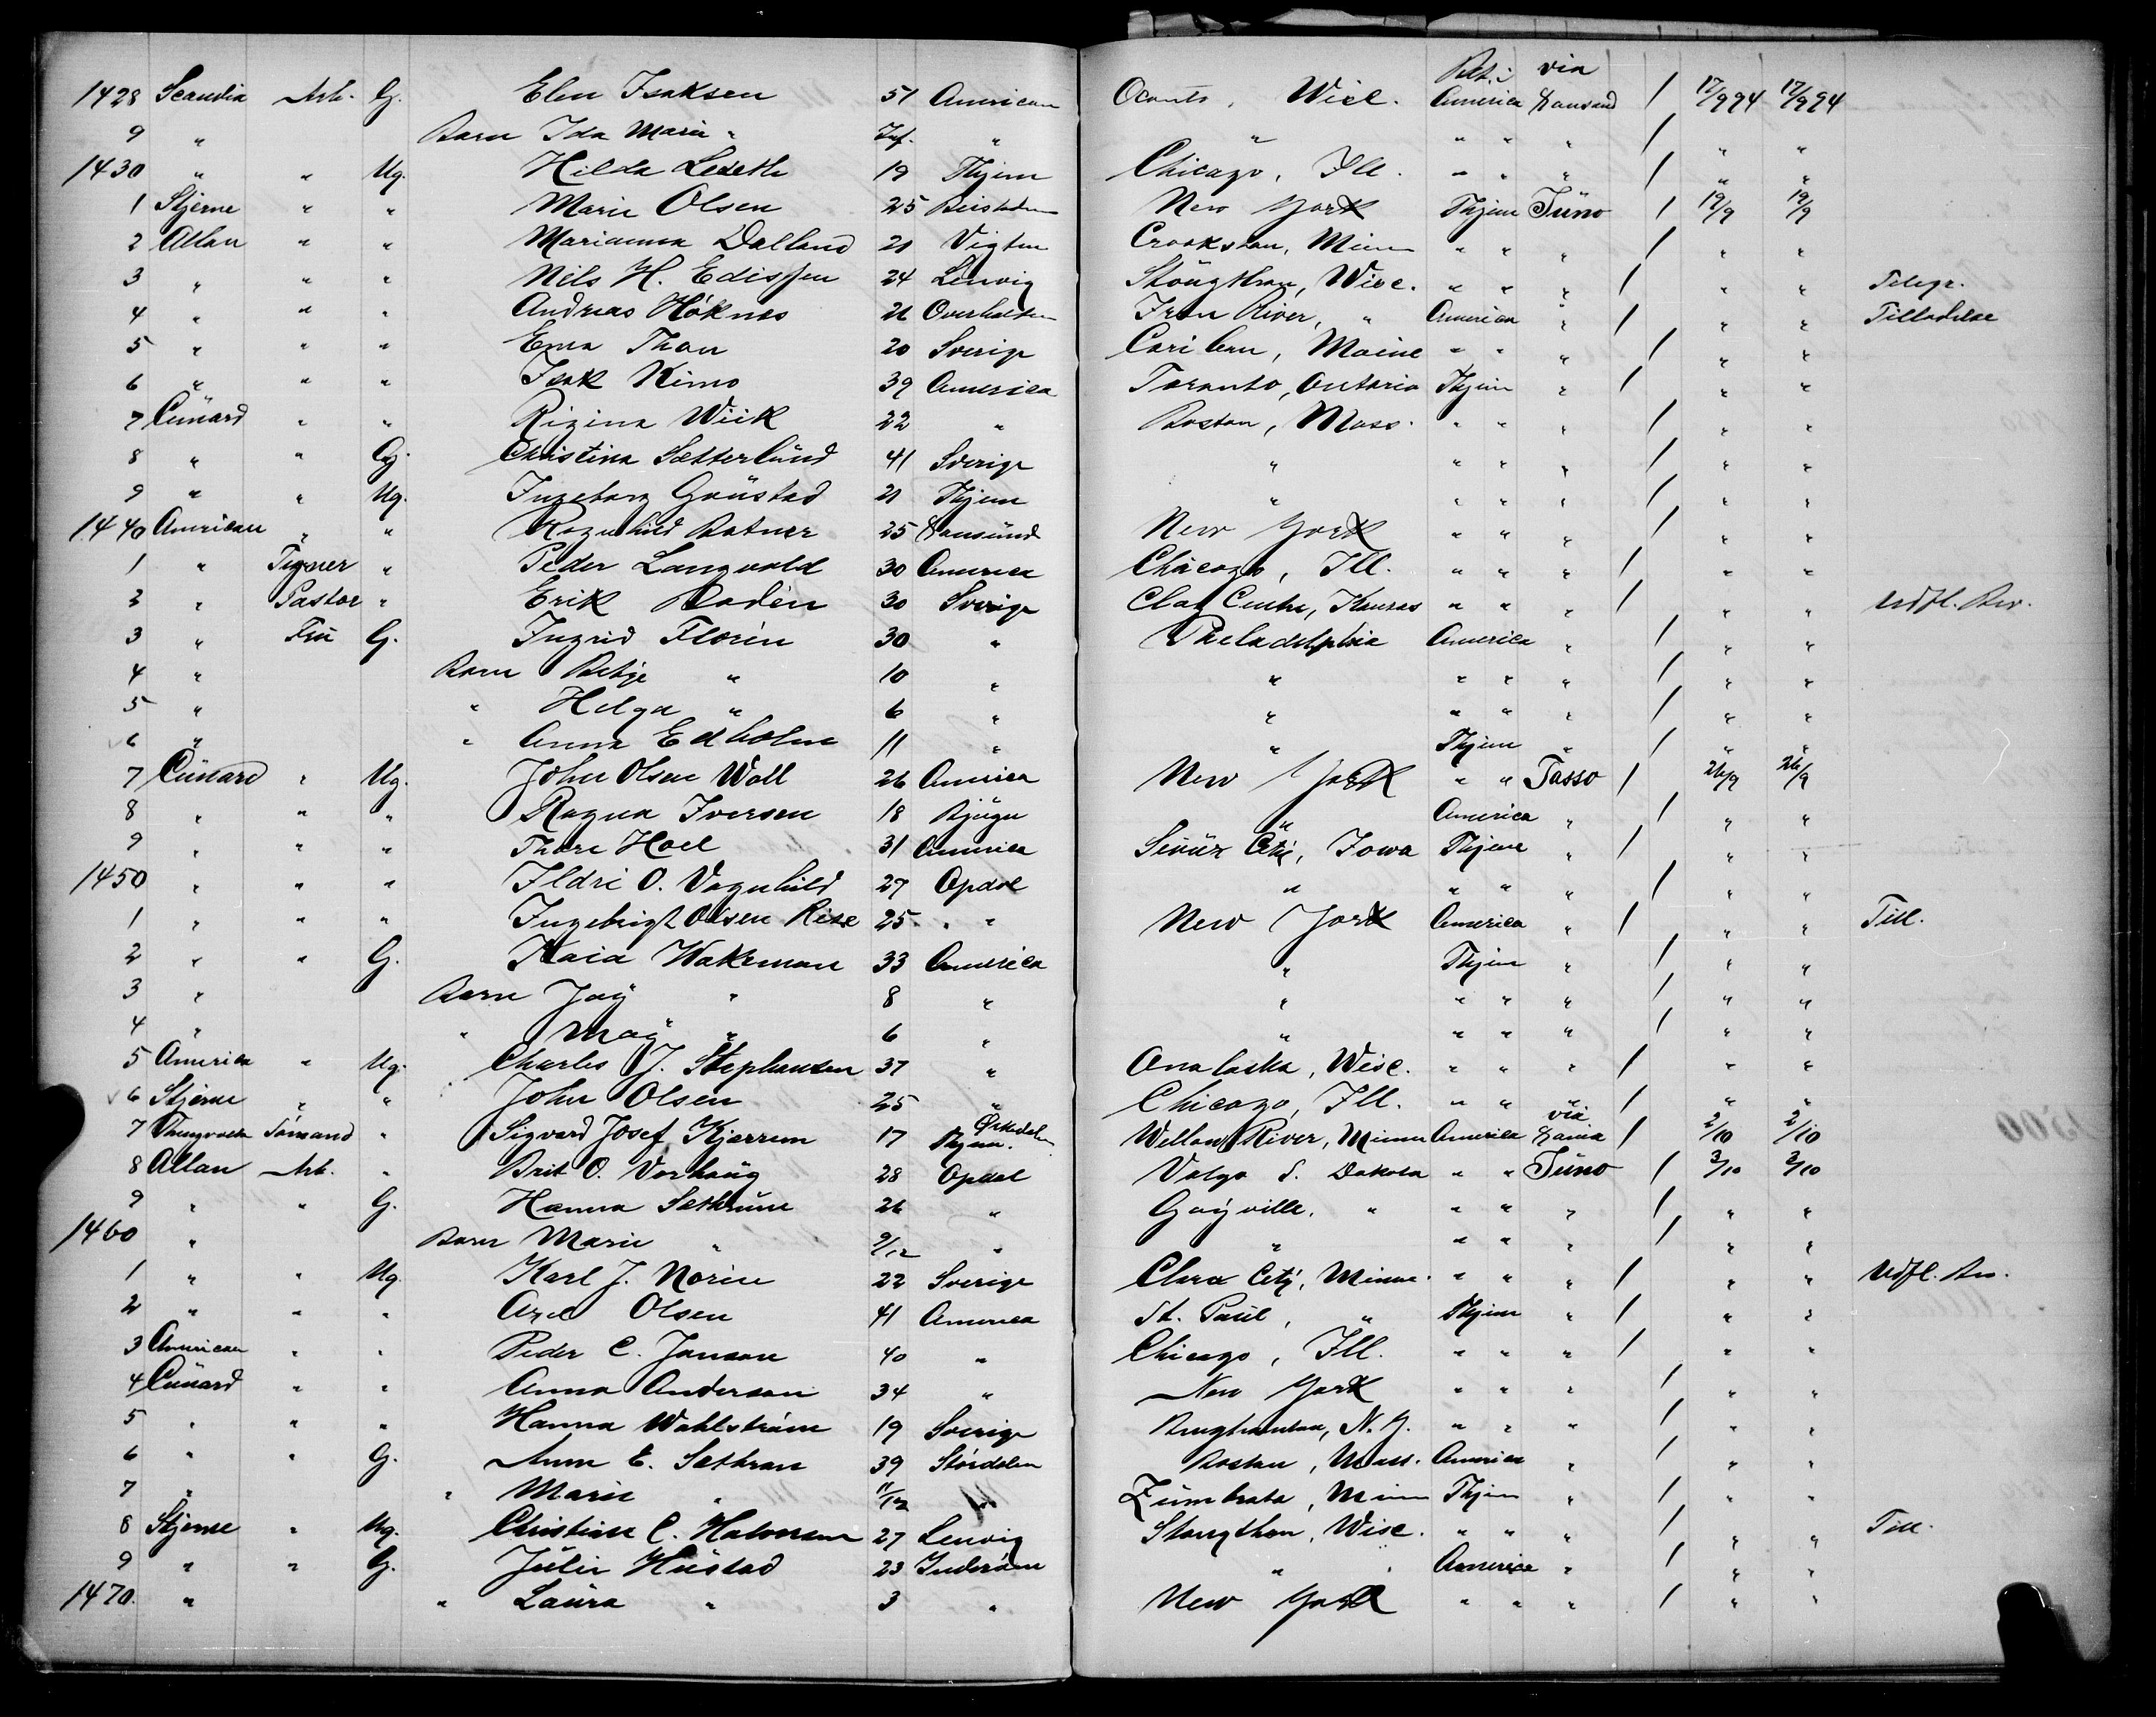 Bet. i via
1428 Scandia Arb. G. Elen Isaksen 51 American Oconto, Wisc. America Xansund / 17/9 94 17/9 94
9 " Barn Ida Marie " Inf. " " " " " / " "
1430 " " Ug. Hilda Leseth 19 Thjem Chicago, Ill. " " " / " "
1 Stjerne " " Marie Olsen 25 Beistaden New York Thjem Juno / 19/9 19/9
2 Allan " " Marianna Dalland 21 Vigten Crookston, Minn " " " / " "
3 " " " Nils H. Edissen 24 Lenvig Stoughton, Wisc. " " " / " " Telegr.
4 " " " Andreas Höknes 21 Overhalden Iron River, " America " / " " Tilladelse
5 " " " Erna Thon 20 Sverige Caribou, Maine " " " / " "
6 " " " Isak Kimo 39 America Toronto, Ontario Thjem " / " "
7 Cunard " " Rigina Wiik 22 " Boston, Mass. " " " / " "
8 " " G. Christina Sætterlund 41 Sverige " " " " / " "
9 " " Ug. Ingeborg Graustad 21 Thjem " " " " / " "
1440 American " " Ragnhild Botner 25 Xansund New York " " " / " "
1 " Tegner " Peder Langvold 30 America Chicago, Ill. " " " / " "
2 " Pastor " Erik Bodén 30 Sverige Clay Center, Kansas " " " / " " Udfl. Bev.
3 " Fru G. Ingrid Florin 30 " Pheladelphia America " / " "
4 " Barn Betje " 10 " " " " " / " "
5 " " Helga " 6 " " " " " / " "
6 " " Anna Edholm 11 " " Thjem " / " "
7 Cunard " Ug. John Olsen Wall 26 America New York " " Tasso / 26/9 26/9
8 " " " Ragna Iversen 18 Bjugn " America " / " "
9 " " " Thore Hoel 31 America Sioux City, Iowa Thjem " / " "
1450 " " " Ildri O. Vognhild 27 Opdal " " " " / " "
1 " " " Ingebrigt Olsen Rise 25 " " New York America " / " " Till.
2 " " G. Kaia Wakeman 33 America " Thjem " / " "
3 " Barn Jay " 8 " " " " " / " "
4 " " May " 6 " " " " " / " "
5 America " Ug. Charles J. Stephansen 37 " Onalaska, Wisc. " " " / " "
6 Stjerne " " John Olsen 25 " Chicago, Ill. " " " / " "
7 Thingvalla Sömand " Sigvard Josef Kjærrem 17 Orkedalen Thjem. Willow River, Minn America via Xania / 2/10 2/10
8 Allan Arb. " Brit O. Vorhaug 28 Opdal Volga S. Dakota " " Juno / 3/10 3/10
9 " " G. Hanna Sætrum 26 " Gayville, " " " " / " "
1460 " Barn Marie " 9/12 " " " " " / " "
1 " " Ug. Karl J. Norin 22 Sverige Clara City, Minne. " " " / " " Udfl. Bev.
2 " " " Axel Olsen 41 America St. Paul, " Thjem " / " "
3 American " " Peder C. Janson 40 " Chicago, Ill. " " " / " "
4 Cunard " " Anna Anderson 34 " New York " " " / " "
5 " " " Hanna Wahlström 19 Sverige Binghamton, N.Y. " " " / " "
6 " " G. Ann E. Sethran 39 Stördalen Boston, Mass. America " / " "
7 " " Marie " 11/12 " Zumbrota, Minn Thjem " / " "
8 Stjerne " Ug. Christian C. Halvorsen 27 Lenvig Stoughton, Wisc. " " " / " " Till.
9 " " G. Julie Hustad 23 Inderöen " " America " / " "
1470. " " Laura " 3 " New York " " " / " "
1500